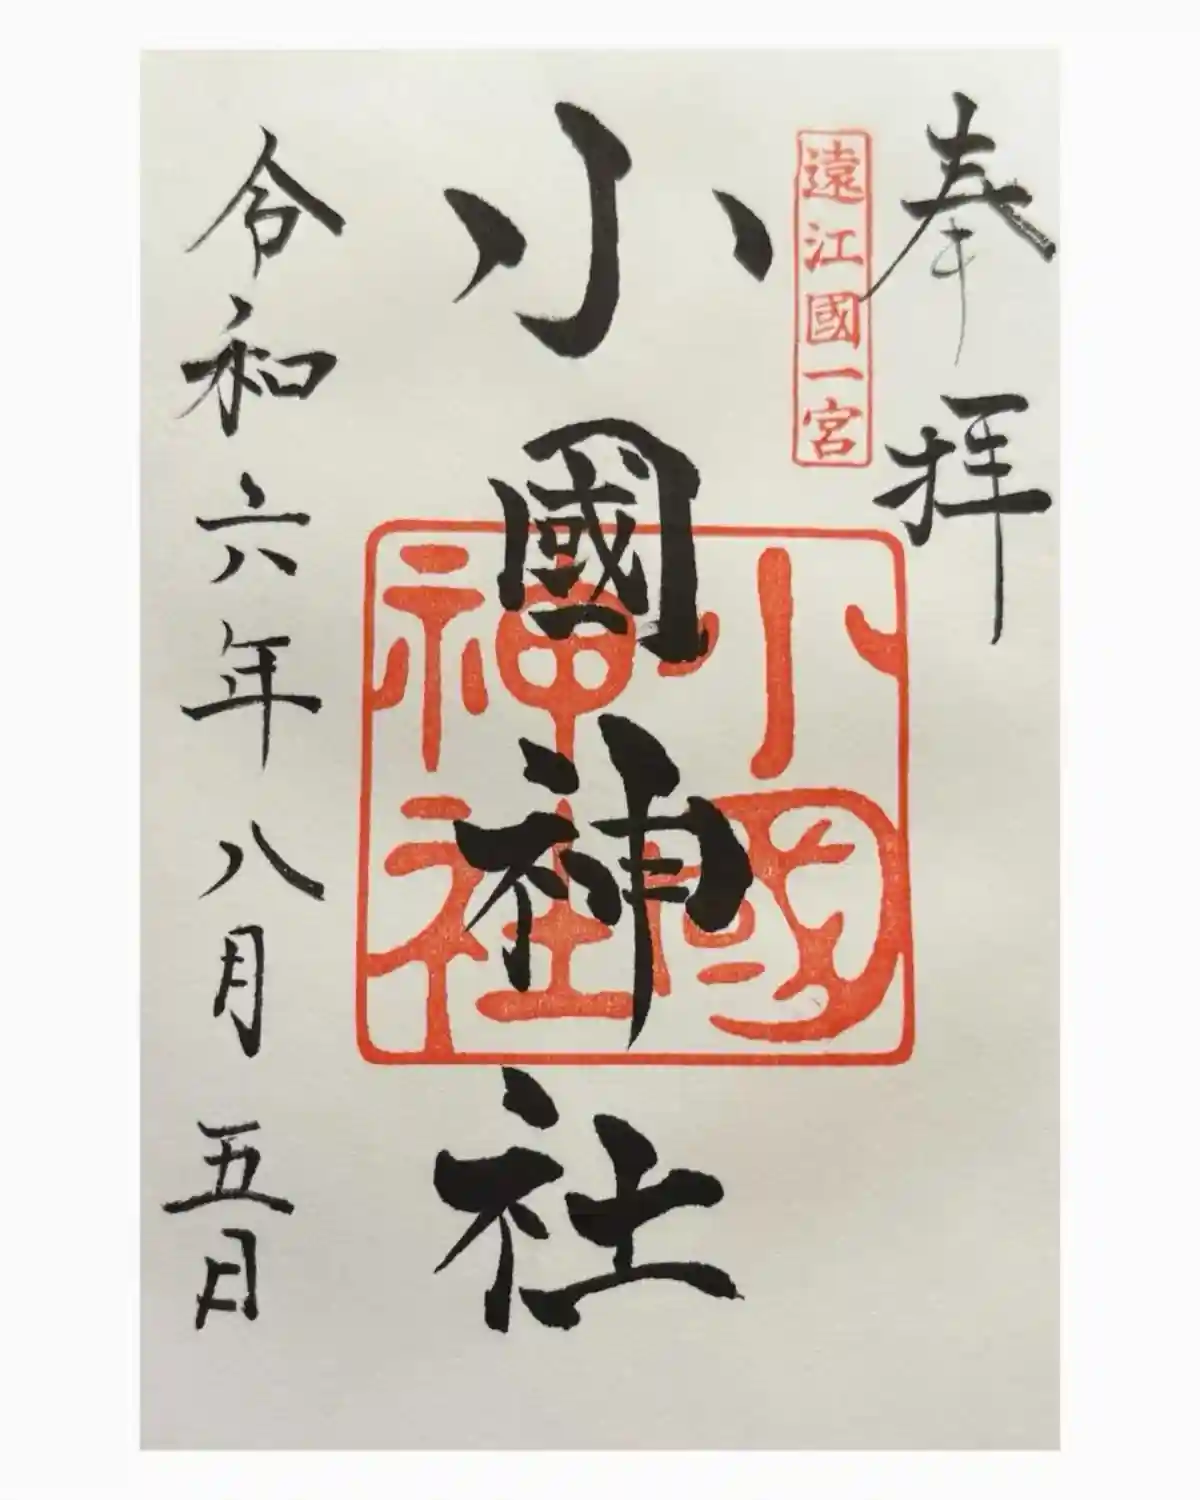 奉拝
遠江國一宮
小國神社
小國
神社
令和六年八月五日